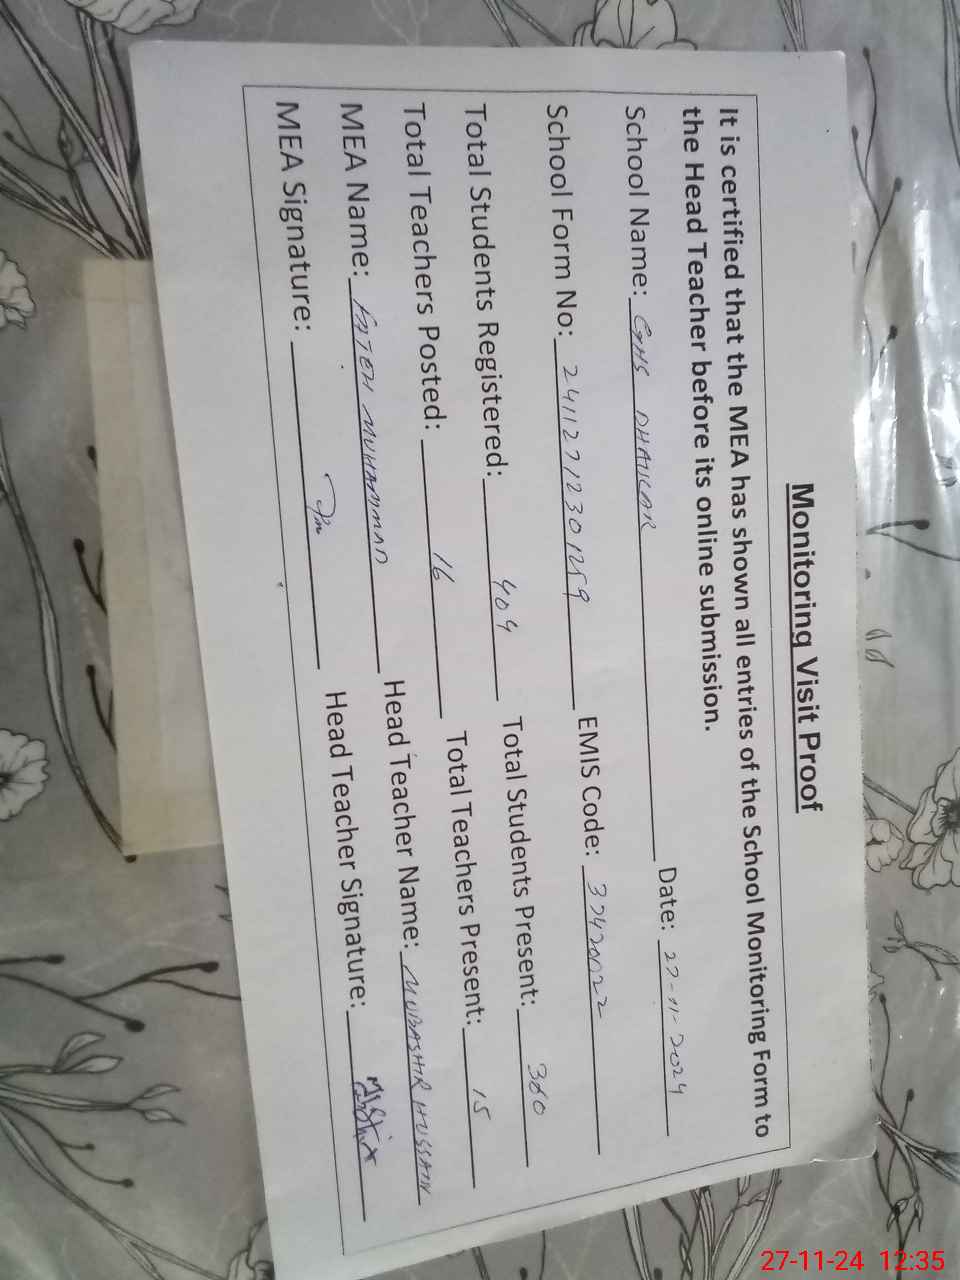 Monitoring Visit Proof
It is certified that the MEA has shown all entries of the School Monitoring Form to
the Head Teacher before its online submission.
School Name: GHS Date: 27-11-2024
School Form No: 24112712301259 EMIS Code: 37420022
Total Students Registered: 404 Total Students Present: 360
Total Teachers Posted: 16 Total Teachers Present: 15
MEA Name: FATEH MUHAMMAD Head Teacher Name: MUBASHIR HUSSAIN
MEA Signature: Head Teacher Signature:
27-11-24 12:35